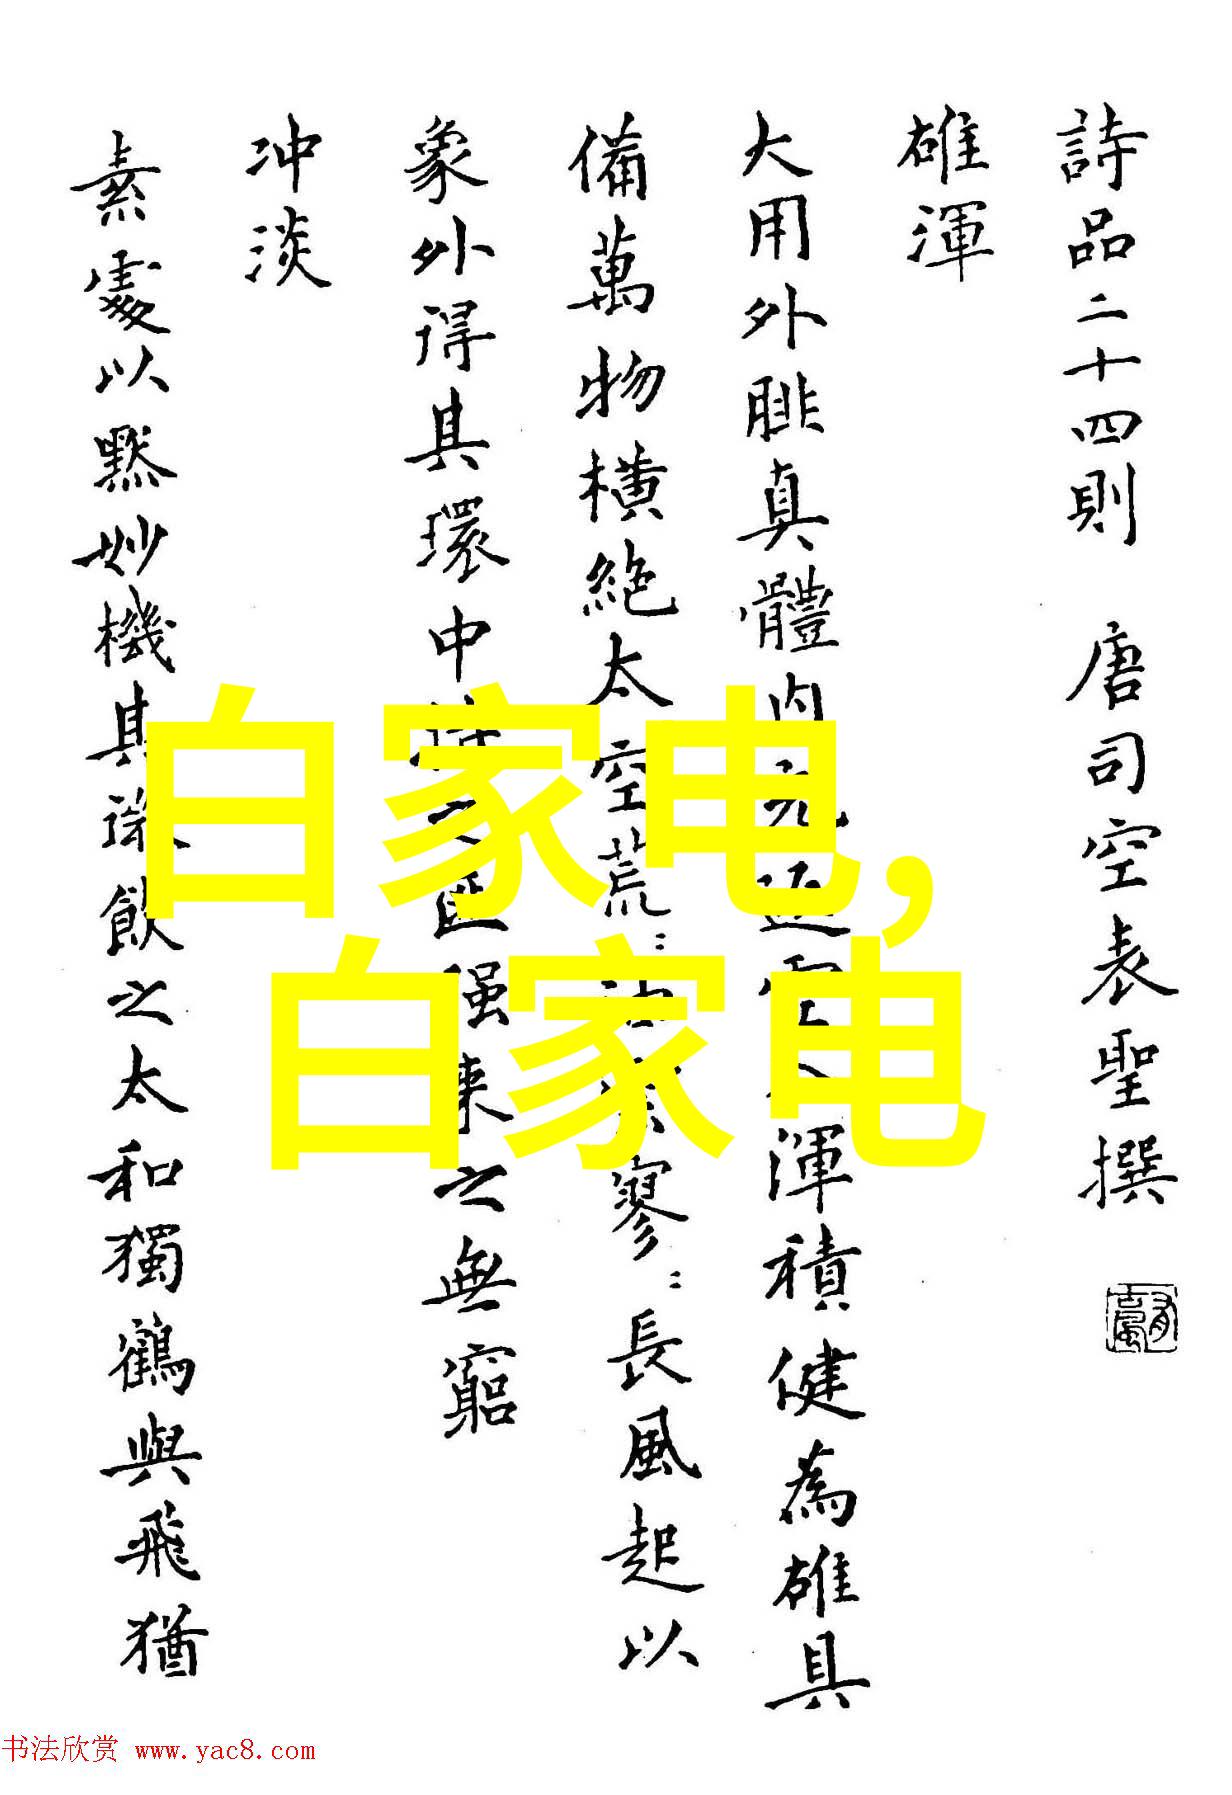 詩品二十四則 唐司空表聖撰
雄渾
大用外腓真體内充返虛入渾積健為雄具
備萬物橫絶太空荒：寥：長風起以
象外得其環中持之匪强來之無窮
冲淡
素處以默妙機其微飲之太和獨鶴與飛猶
白家电,
白家电
书法欣赏 www.yac8.com